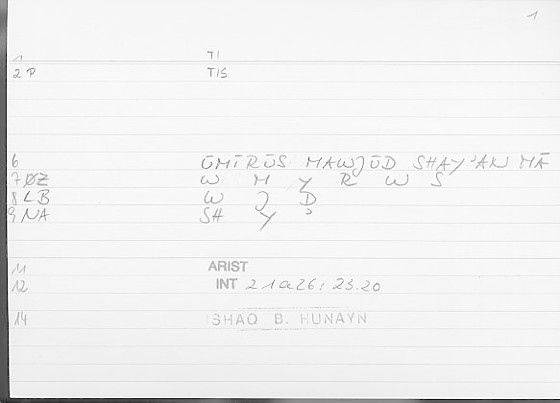 1
1 TI
2 P TIS
6 ŪMĪRŪS MAWJŪD SHAY'AN MĀ
7 ØZ W M Y R W S
8 LB W J D
9 NA SH Y '
11 ARIST
12 INT 21a26; 23.20
14 ISHAQ B. HUNAYN